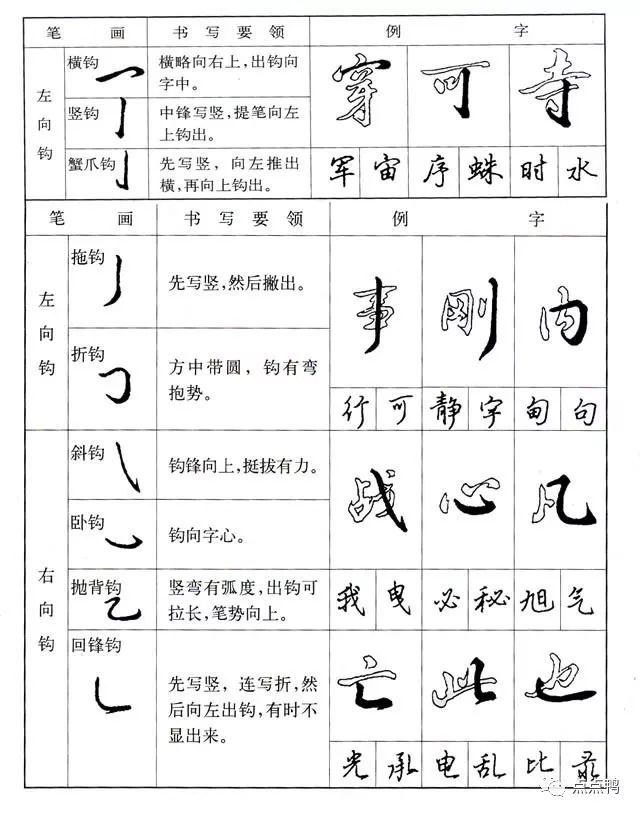 笔 画 书写要领 例 字
左向钩
横钩
横略向右上,出钩向
字中。
竖钩
中锋写竖,提笔向左
上钩出。
蟹爪钩
先写竖,向左推出
横,再向上钩出。
穿 可 寺
军 宙 序 蛛 时 水
笔 画 书写要领 例 字
左向钩
拖钩
先写竖,然后撇出。
折钩
方中带圆,钩有弯
抱势。
事 刚 内
行 可 静 字 甸 句
右向钩
斜钩
钩锋向上,挺拔有力。
卧钩
钩向字心。
抛背钩
竖弯有弧度,出钩可
拉长,笔势向上。
回锋钩
先写竖,连写折,然
后向左出钩,有时不
显出来。
战 心 凡
我 曳 必 秘 旭 气
亡 此 也
光 承 电 乱 比
点点鸭